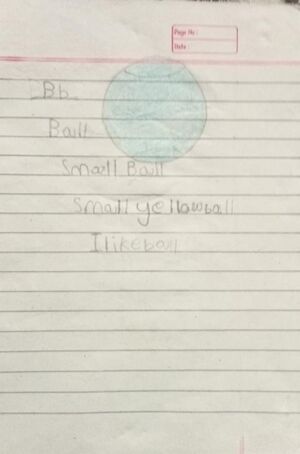 Page No :
Date
Bb
Ball
Small Ball
Small yellowball
I likeball